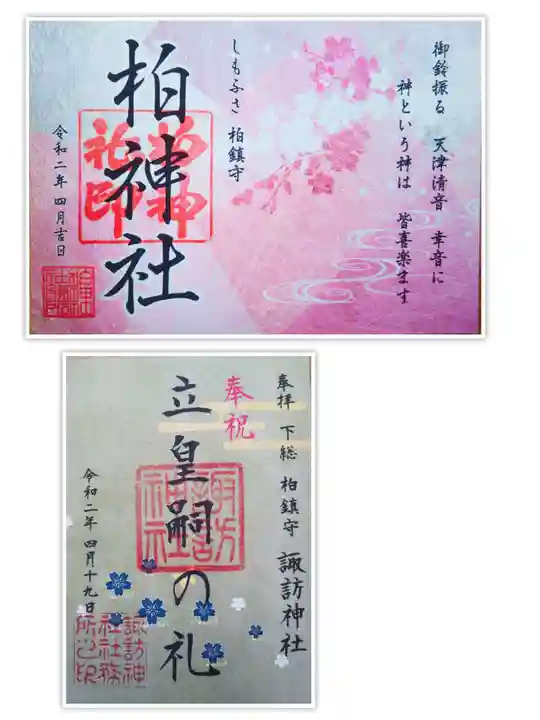 御鈴振る 天津清音 幸音に
神という神は 皆喜楽ます
しもふさ 柏鎮守
柏神社
令和二年 四月吉日
奉拝 下総 柏鎮守 諏訪神社
奉祝
立皇嗣の礼
諏訪神社
令和二年 四月十九日
諏訪神社社務所之印